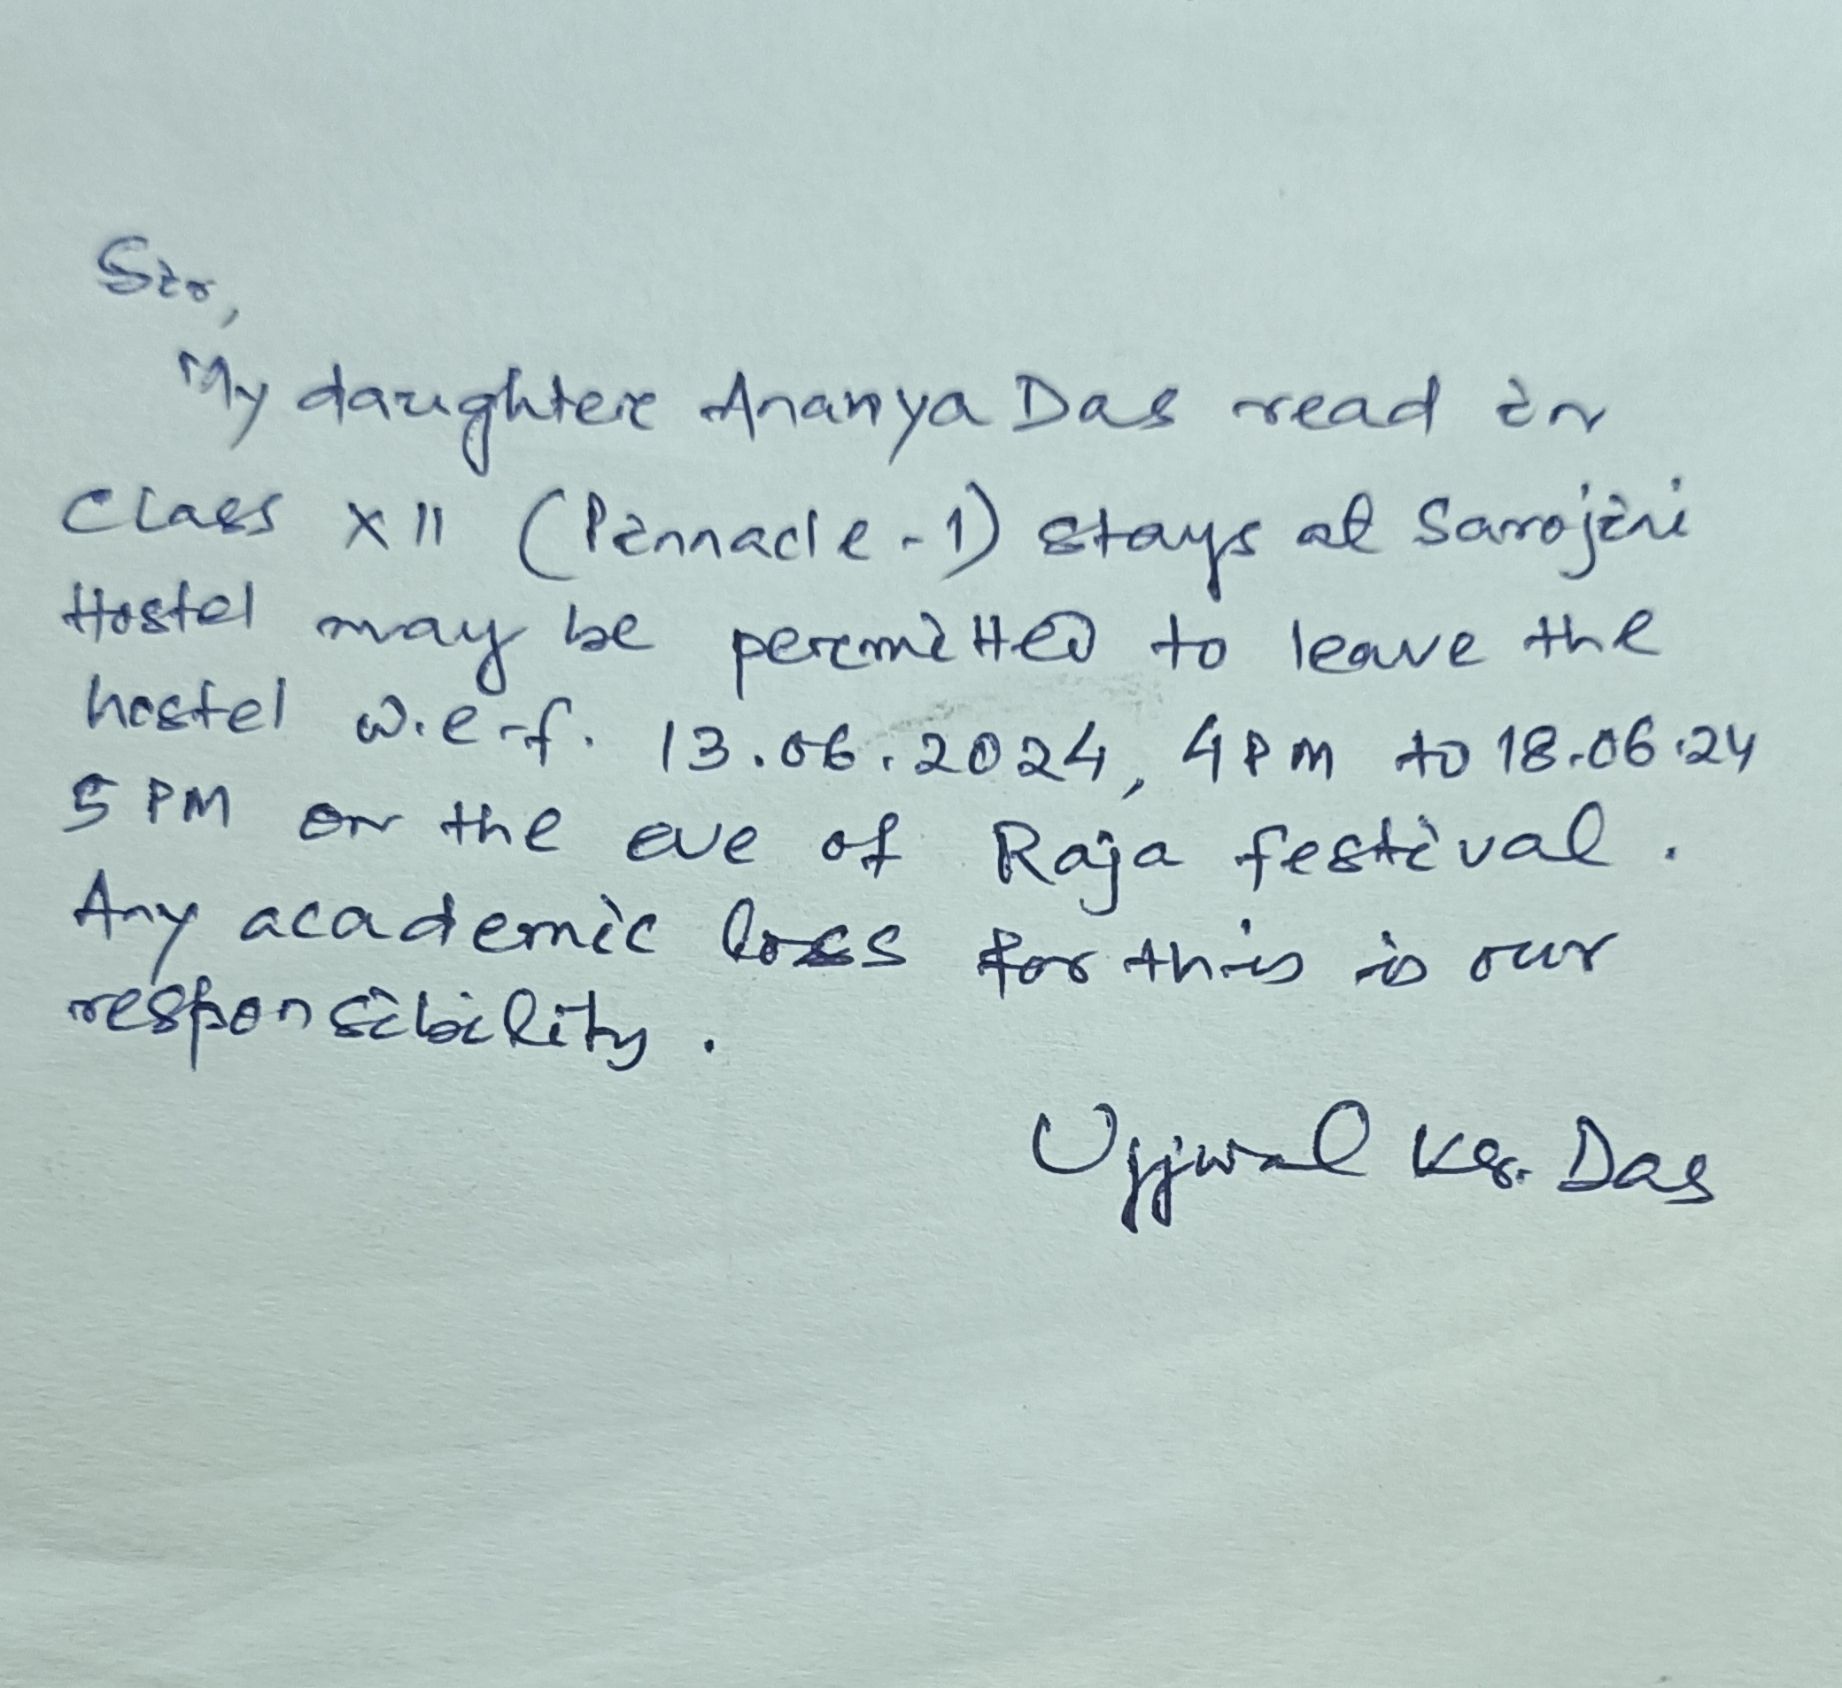 Sir,
My daughter Ananya Das read in
Class XII (Pinnacle-1) stays at Sarojini
Hostel may be permitted to leave the
hostel w.e.f. 13.06.2024, 4 PM to 18.06.24
5 PM on the eve of Raja festival.
Any academic loss for this is our
responsibility.
Ujjwal Kr. Das